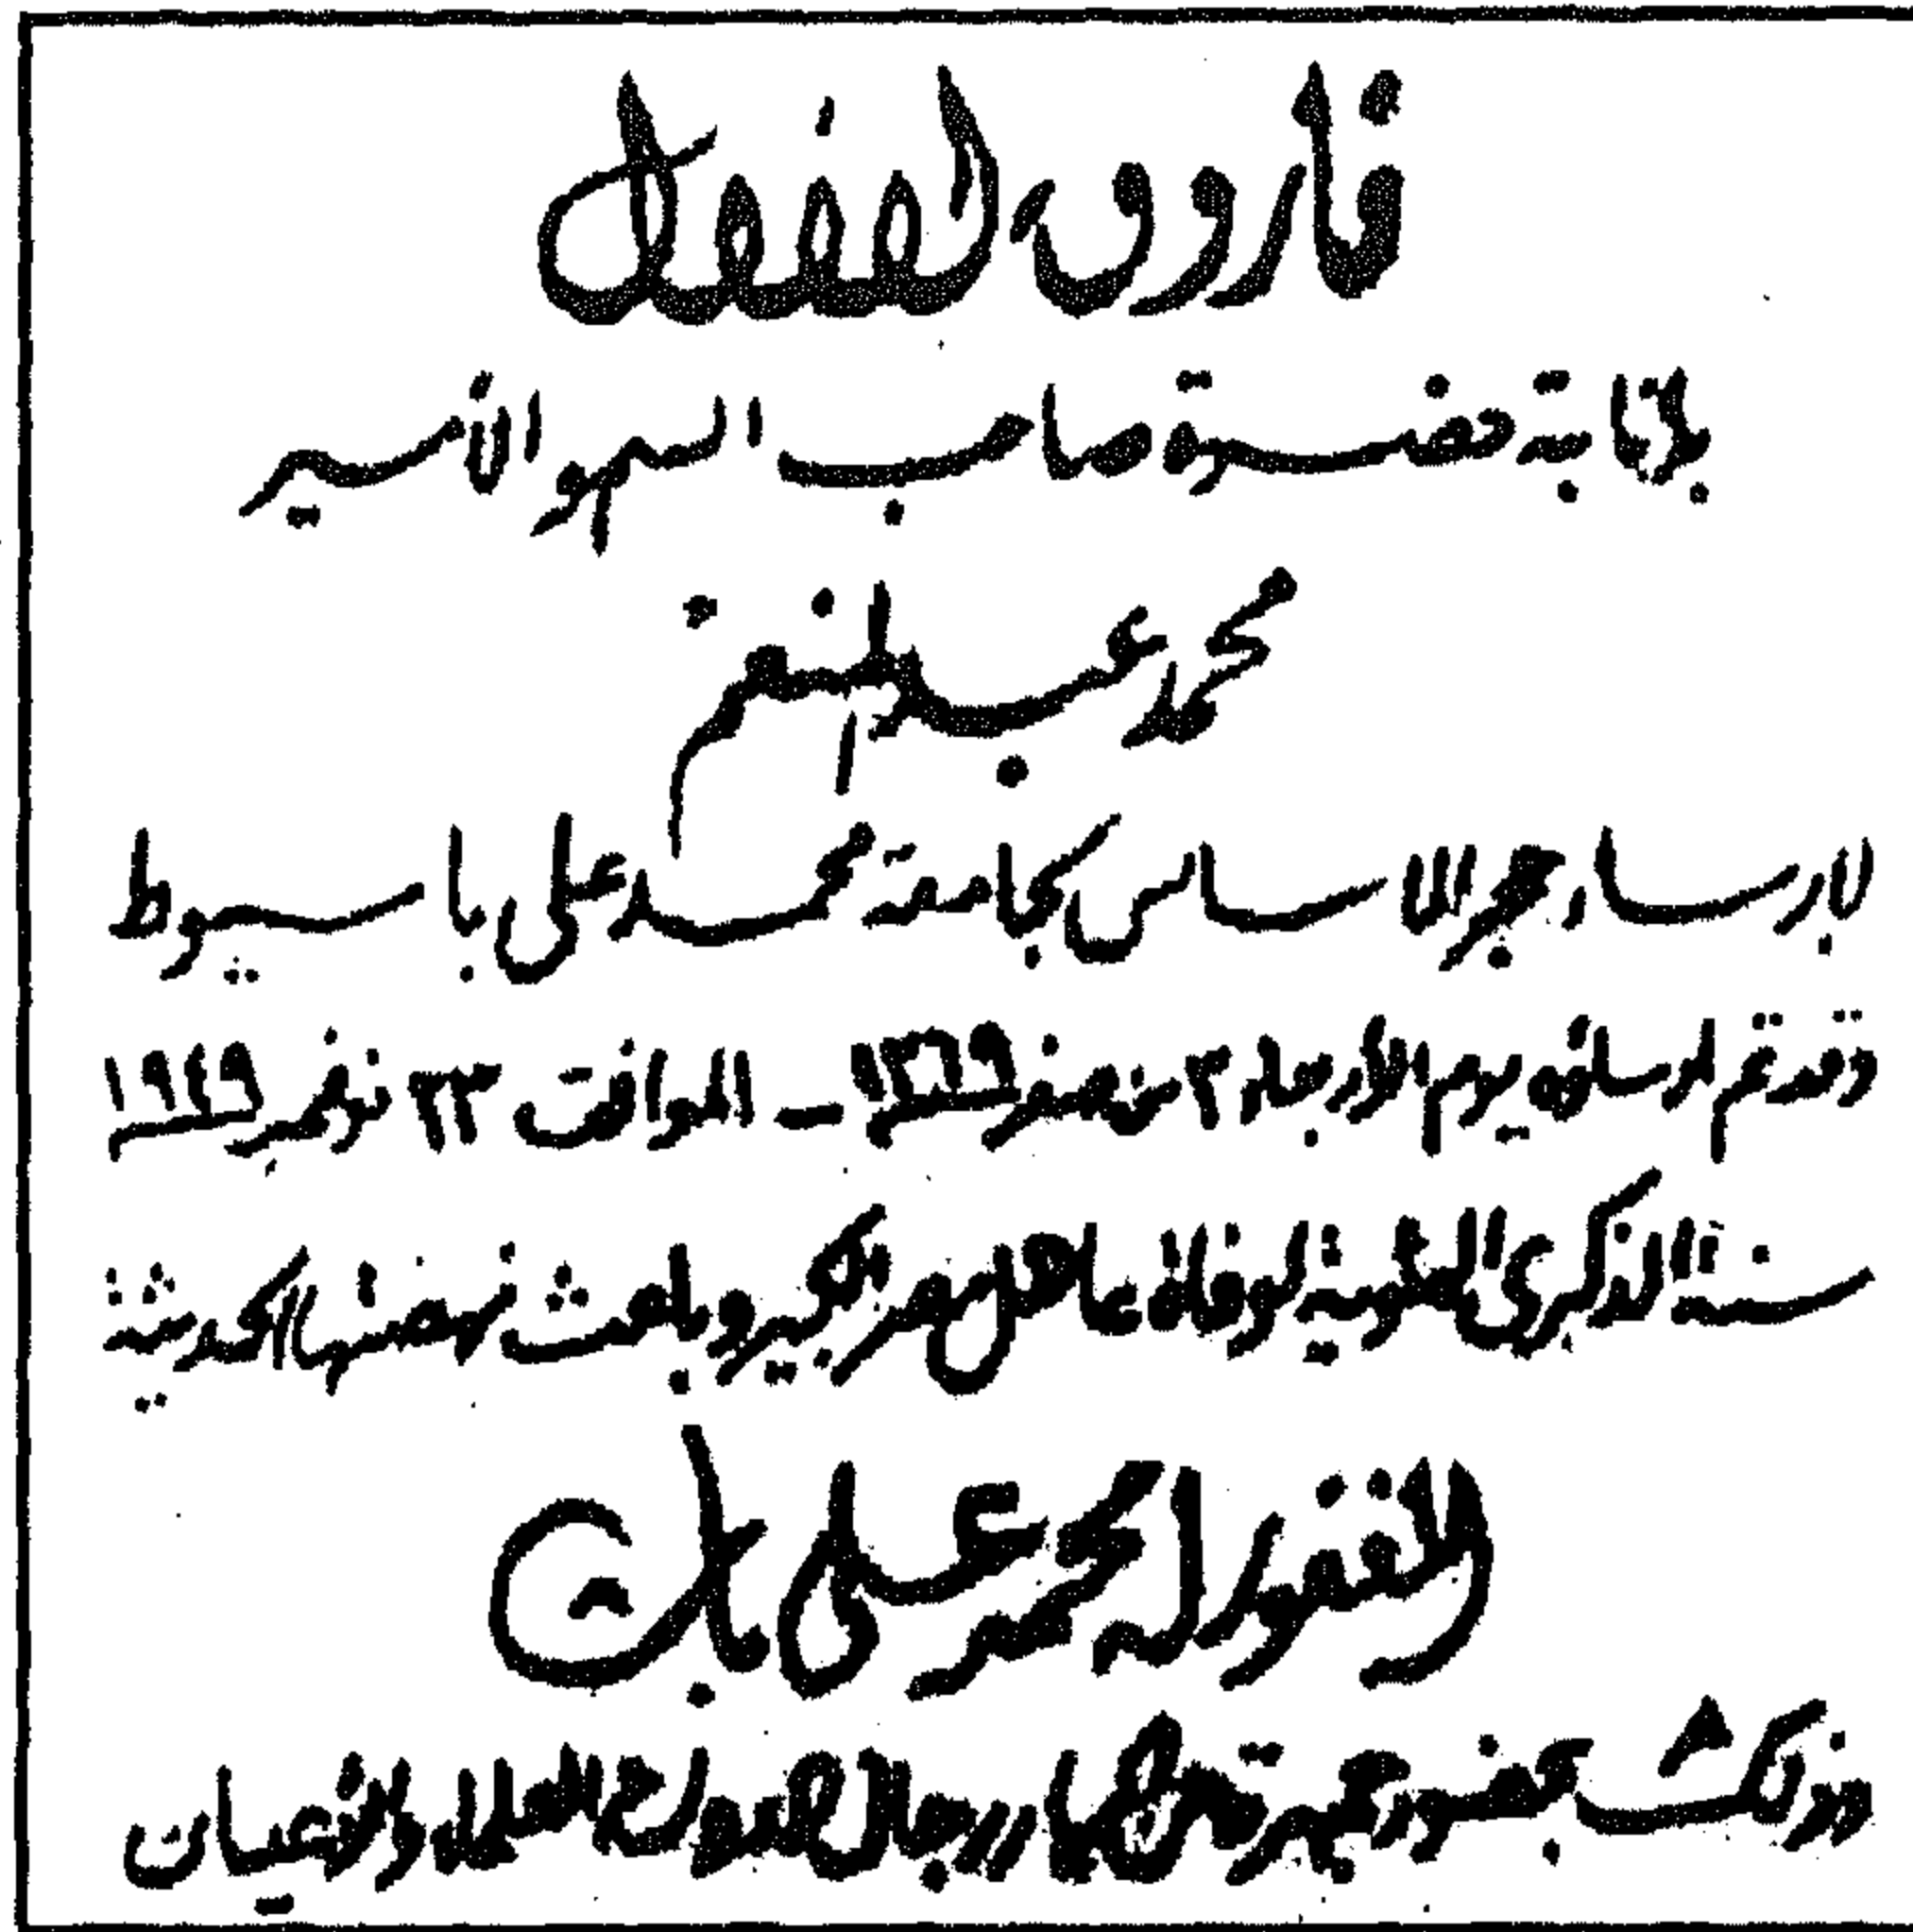 فاروق
بإنابة حضرة صاحب السمو الأمير
محمد عبد المنعم
لإرساء حجر الأساس لجامعة محمد على بأسيوط
وقد تم إرساؤه يوم الأربعاء ٢ من صفر ١٣٦٩ – الموافق ٢٣ نوفمبر ١٩٤٩
سنة الذكرى المئوية لوفاة عاهل مصر الكبير وباعث نهضتها الحديثة
المغفور له محمد على باشا
وذلك بحضور جمهرة من كبار رجال الدولة والأعيان